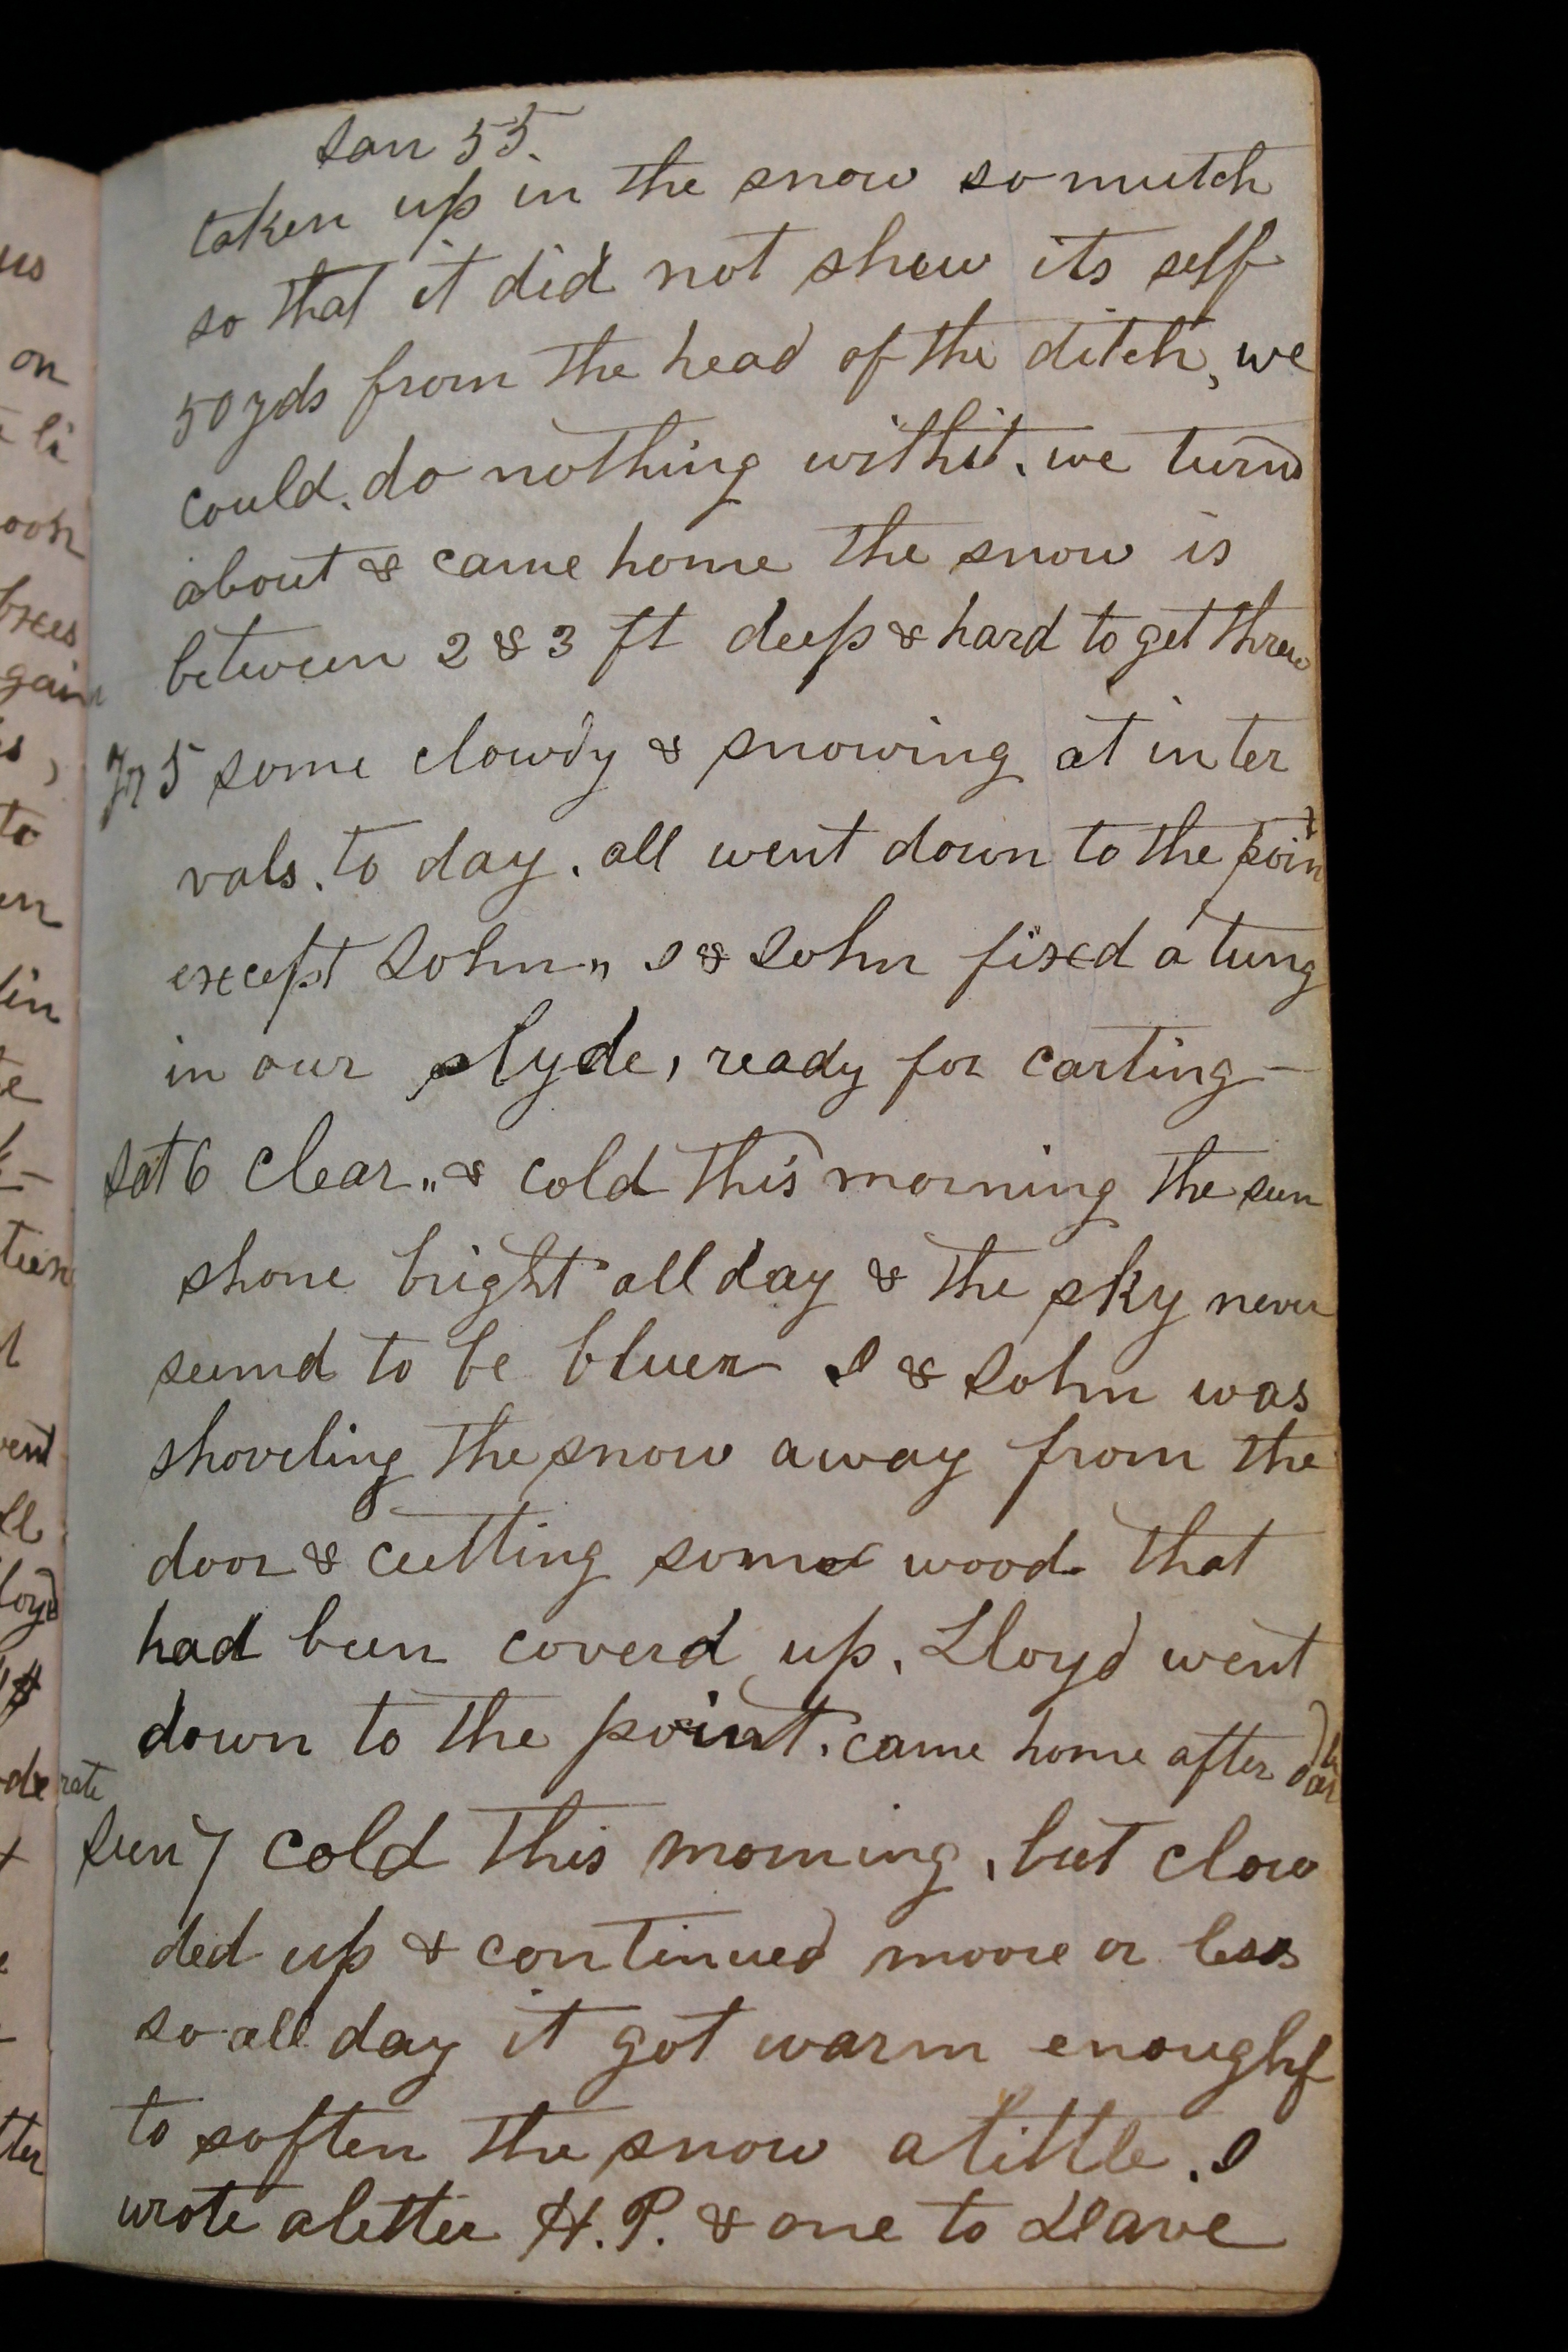 Jan 55.
taken up in the snow so mutch
so that it did not shew its self
50 yds from the head of the ditch, we
could. do nothing with it. we turnd
about & came home the snow is
between 2 & 3 ft deep & hard to get threw
5 some clowdy & snowing at inter
vals. to day. all went down to the point
except John„ I & John fixed a tung
in our slyde, ready for carting -
Sat 6 Clear„ & cold this morning the sun
shone bright all day & the sky never
seemd to be bluer I & John was
shoveling the snow away from the
door & cutting some wood that
had been coverd up. Lloyd went
down to the point. came home after dark
Sun 7 cold this morning, but clow
ded up & continued moore or less
so all day it got warm enough
to soften the snow a little. I
wrote a letter H.P. & one to Dave
us
on
gain
to
rate